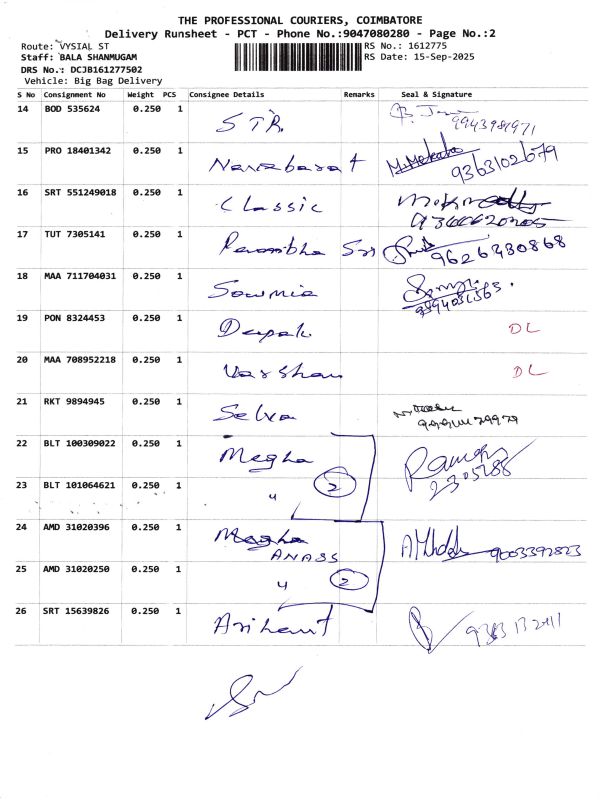 THE PROFESSIONAL COURIERS, COIMBATORE
Delivery Runsheet - PCT - Phone No.:9047080280 - Page No.:2
Route: VYSIAL ST
RS No.: 1612775
Staff: BALA SHANMUGAM
RS Date: 15-Sep-2025
DRS No.: DCJB161277502
Vehicle: Big Bag Delivery
S No Consignment No Weight PCS Consignee Details Remarks Seal & Signature
14 BOD 535624 0.250 1 STR
15 PRO 18401342 0.250 1 9363102679
16 SRT 551249018 0.250 1 Classic
17 TUT 7305141 0.250 1 9626330868
18 MAA 711704031 0.250 1 Sowmia
19 PON 8324453 0.250 1 Deepak DL
20 MAA 708952218 0.250 1 Varshan DL
21 RKT 9894945 0.250 1 Selva
22 BLT 100309022 0.250 1 Megha
2305288
23 BLT 101064621 0.250 1 " 2
24 AMD 31020396 0.250 1 ANABS 9003392823
25 AMD 31020250 0.250 1 " 2
26 SRT 15639826 0.250 1 Arihant